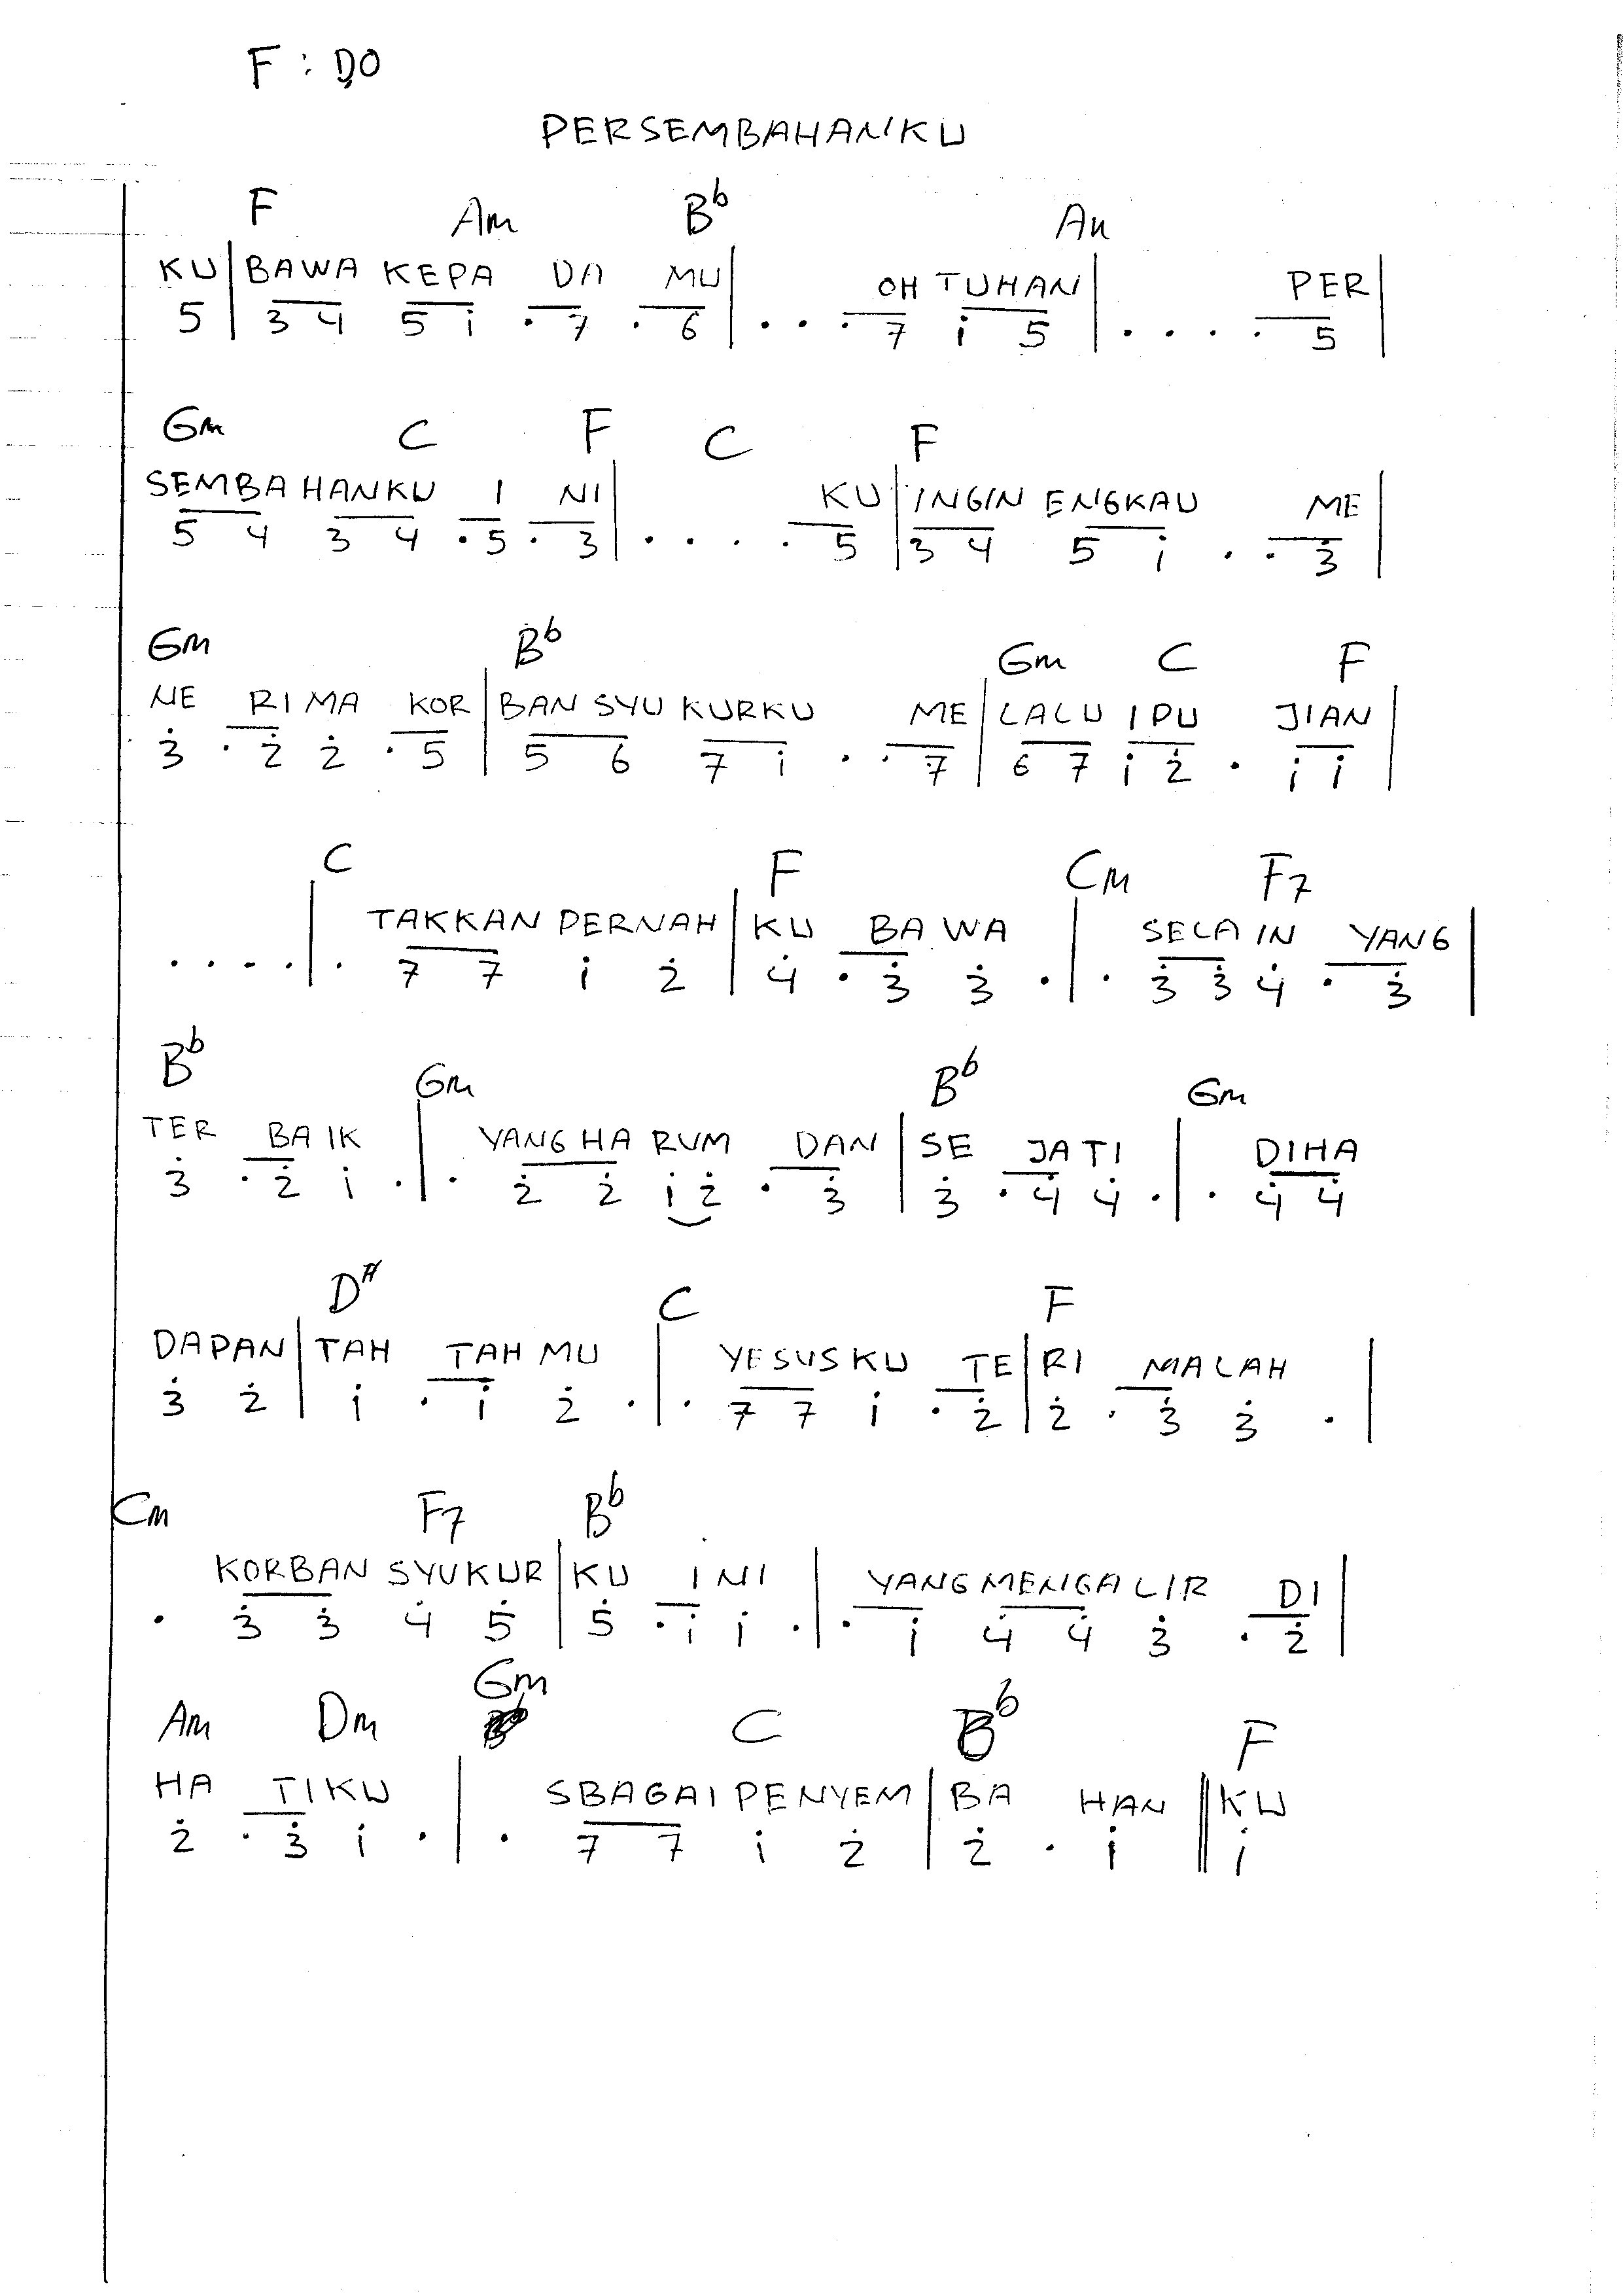 F : DO
PERSEMBAHANKU
F Am Bb Am
KU | BAWA KEPA DA MU | OH TUHAN | PER |
5 | 3 4 5 i . 7 . 6 | . . . 7 i 5 | . . . . . 5 |
Gm C F C F
SEMBAHANKU I NI | KU | INGIN ENGKAU ME |
5 4 3 4 . 5 . 3 | . . . . . 5 | 3 4 5 i . . 3̇ |
Gm Bb Gm C F
NE RIMA KOR | BAN SYUKURKU ME | LALUI PU JIAN |
3̇ . 2̇ 2̇ . 5 | 5 6 7 i . . 7 | 6 7 i 2̇ . i i |
C F Cm F7
TAKKAN PERNAH | KU BAWA | SELAIN YANG |
. . . . | . 7 7 i 2̇ | 4̇ . 3̇ 3̇ . | . 3̇ 3̇ 4̇ . 3̇ |
Bb Gm Bb Gm
TER BAIK | YANG HARUM DAN | SE JATI | DIHA
3̇ . 2̇ i . | . 2̇ 2̇ i 2̇ . 3̇ | 3̇ . 4̇ 4̇ . | . 4̇ 4̇
D# C F
DAPAN | TAH TAHMU | YESUSKU TE | RI MALAH |
3̇ 2̇ | i . i 2̇ . | . 7 7 i . 2̇ | 2̇ . 3̇ 3̇ . |
Cm F7 Bb
KORBAN SYUKUR | KU INI | YANG MENGALIR DI |
. 3̇ 3̇ 4̇ 5̇ | 5̇ . i i . | . i 4̇ 4̇ 3̇ . 2̇ |
Gm
Am Dm C Bb F
HA TIKU | SBAGAI PENYEM | BA HAN || KU
2̇ . 3̇ i . | . 7 7 i 2̇ | 2̇ . i || i